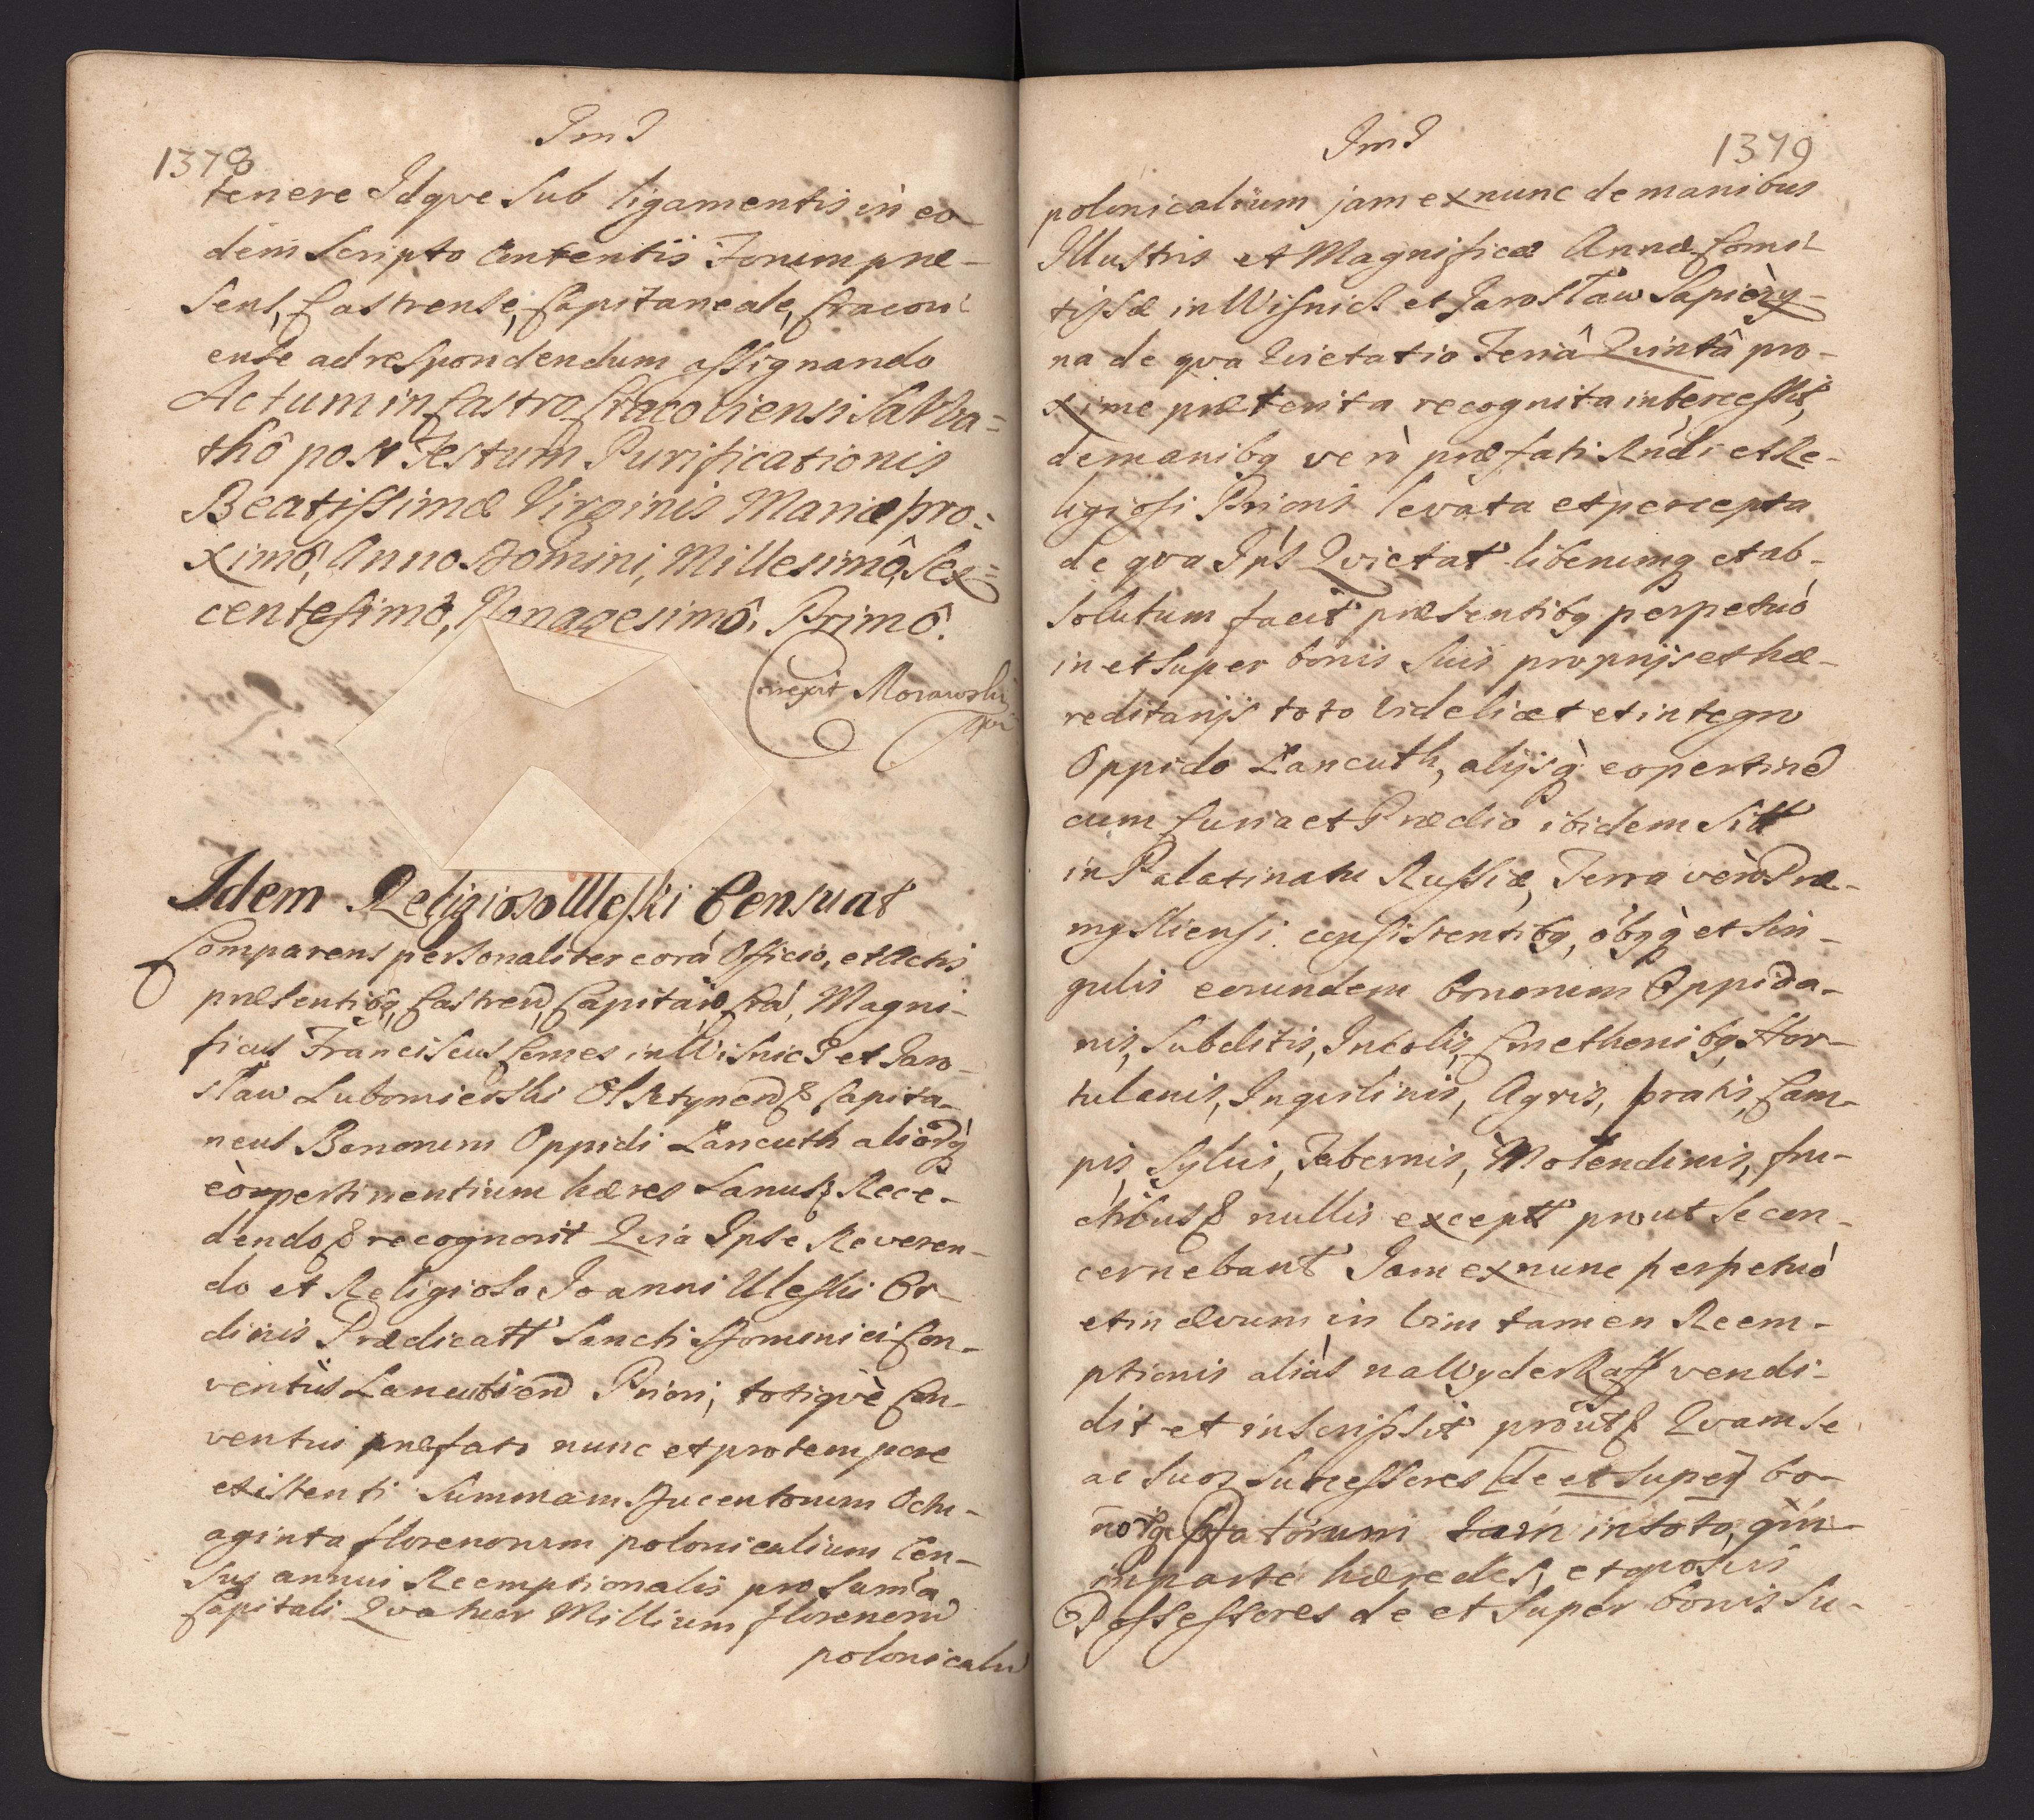 1378
ImJ
tenere Idqve Sub ligamentis in eo
dem Scripto Contentis Forum præ-
sens, Castrense, Capitaneale, Cracovi
ense ad respondendum assignando
Actum in Castro Cracoviensi Sabba=
thô post Festum Purificationis
Beatissimæ Virginis Mariæ pro=
ximô, Anno Domini, Millesimô, Sex=
centesimô, Nonagesimô, Primô.
Correxit Morawski
Idem Religioso Uleski Censuat
Comparens personaliter corã Officio, et Actis
præsentibq Castren, Capitan, Cra, Magni-
ficus Franciscus Comes in Wisnicz et Jaro-
sław Lubomierski Olsztynen & Capita-
neus Bonorum Oppidi Łancuth aliorq
eò pertinentium hæres Sanus & Rece-
dendo & recognovit Qvia Ipse Reveren-
do et Religioso Joanni Uleski Or-
dinis Prædicatt Sancti Dominici Con-
ventûs Lancutien Priori, totiqve Con-
ventui præfato nunc et pro tempore
existenti Summam Ducentorum Octu-
aginta florenorum polonicalium Cen-
sus annui Reemptionalis pro Sum̃a
Capitali Qvatuor Millium florenoru
polonicaliu
ImJ
1379
polonicalium jam ex nunc de manibus
Illustris et Magnificæ Annæ Comi
tissæ in Wisnicz et Jarosław Sapiezy-
na de qva Qvietatio Feriâ Qvintâ pro-
xime præterita recognita intercessit,
de manibq verò præfati Rndi et Re-
ligiosi Prioris levata et percepta
de qva Ips Qvietat liberumq et ab-
solutum facit præsentibq perpetuò
in et super bonis suis proprijs et hæ-
reditarijs toto videlicet et integro
Oppido Łancuth, alijsq eo pertinen
cum Curia et Prædio ibidem Sitt
in Palatinatu Russiæ, Terra verò Præ-
mysliensi consistentibq, oibqq et sin-
gulis eorundem bonorum Oppida-
nis, Subditis, Incolis, Cmethonibq, Hor-
tulanis, Inqvilinis, Agris, pratis, Cam-
pis, Sylvis, Tabernis, Molendinis, fru-
ctibus & nullis exceptt prout se con-
cernebant Jam ex nunc perpetuò
et in ævum in vim tamen Reem-
ptionis aliàs na Wyderkaff vendi-
dit et inscripsit prout & Qvam se
ac suos Successores [de et super] bo-
norq pfatorum tam in toto, qm
in parte hæredes, et qvosvis
Possessores de et super bonis Su-